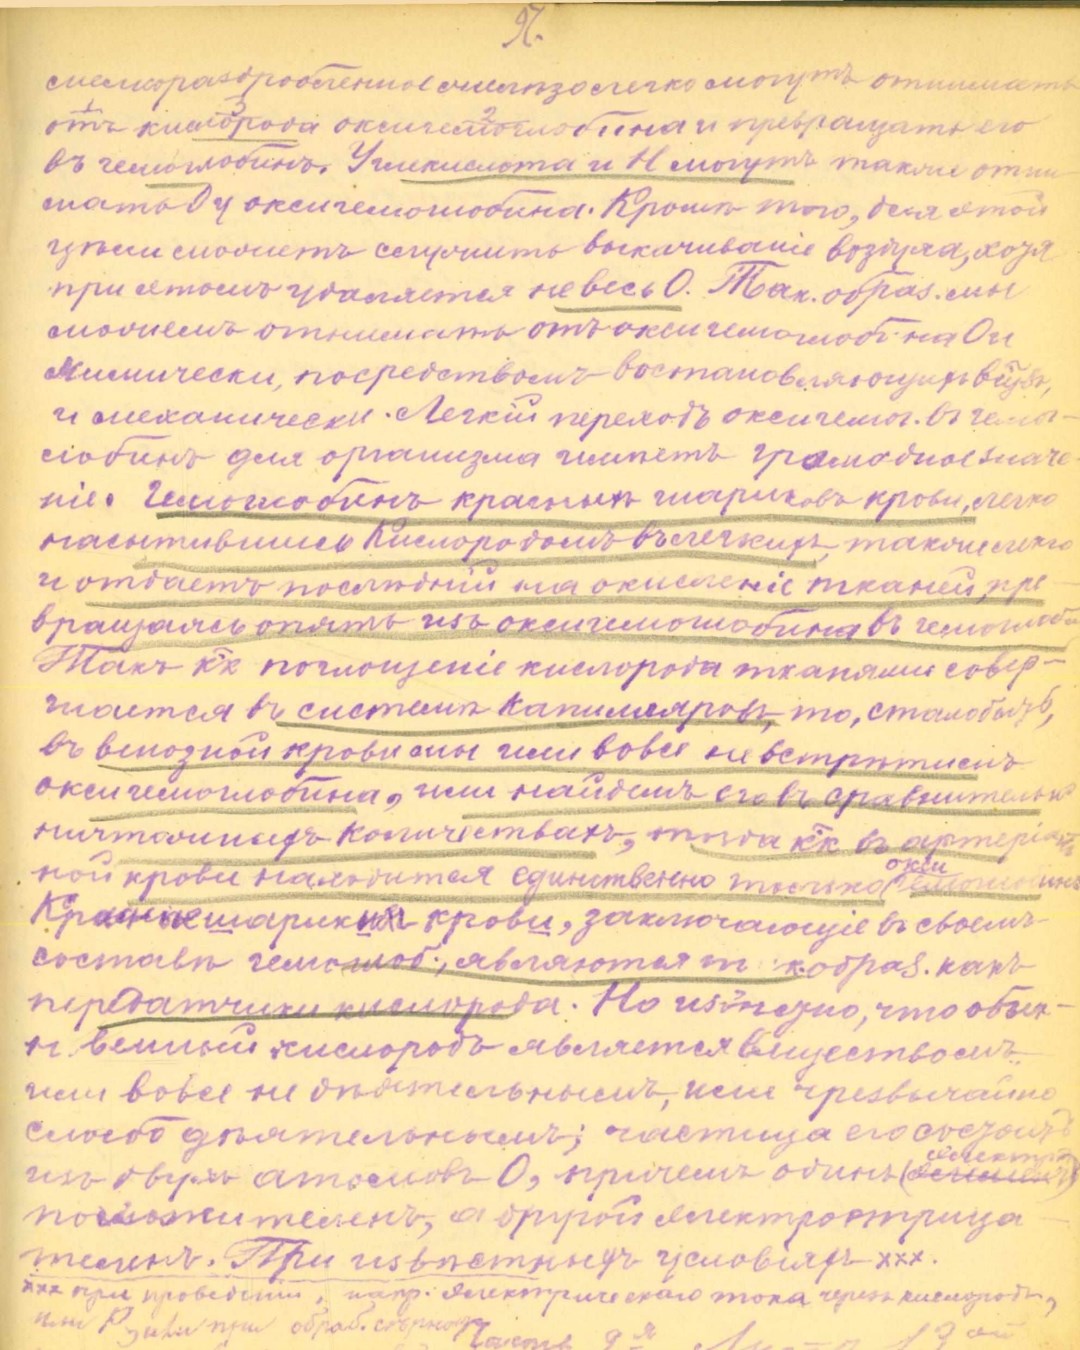 97.
мелкораздробленное желѣзо легко могутъ отнимать
отъ кислорода оксигемоглобина и превращать его
въ гемоглобинъ. Углекислота и Н могутъ также отни-
мать О у оксигемоглобина. Кромѣ того, для этой
цѣли можетъ служить выкачиваніе воздуха, хотя
при этомъ удаляется не весь О. Так. образ. мы
можемъ отнимать отъ оксигемоглобина О и
химически, посредствомъ востановляющихъ
и механически. Легкій переходъ оксигемог. въ гемо-
глобинъ для организма имѣетъ громодное значе-
ніе. Гемоглобинъ красныхъ шариковъ крови, легко
насытившись кислородомъ въ легкихъ, также легко
и отдаетъ послѣдній на окисленіе тканей, пре-
вращаясь опять изъ оксигемоглобина въ гемоглоби
Такъ к̅к̅ поглощеніе кислорода тканями совер-
шается въ системѣ капилляровъ, то, сталобыть,
въ венозной крови мы или вовсе не встрѣтимъ
оксигемоглобина, или найдемъ его въ сравнительно
ничтожныхъ количествахъ, тогда к̅к̅ въ артеріаль
ной крови находится единственно только оксигемоглобинъ
Красные шарики крови, заключающіе въ своемъ
составѣ гемоглоб., являются т. к. образ. какъ
передатчики кислорода. Но извѣстно, что обык-
н. венный кислородъ является веществомъ
или вовсе не дѣятельнымъ, или чрезвычайно
слабо дѣятельнымъ; частица его состоитъ
изъ двухъ атомовъ О, причемъ одинъ (электр
положителенъ, а другой электроотрица-
теленъ. При извѣстныхъ условіяхъ ххх.
ххх при проведеніи, напр. электрическаго тока черезъ кислородъ,
или Р при обраб.
Часть 2я Листъ 13ой